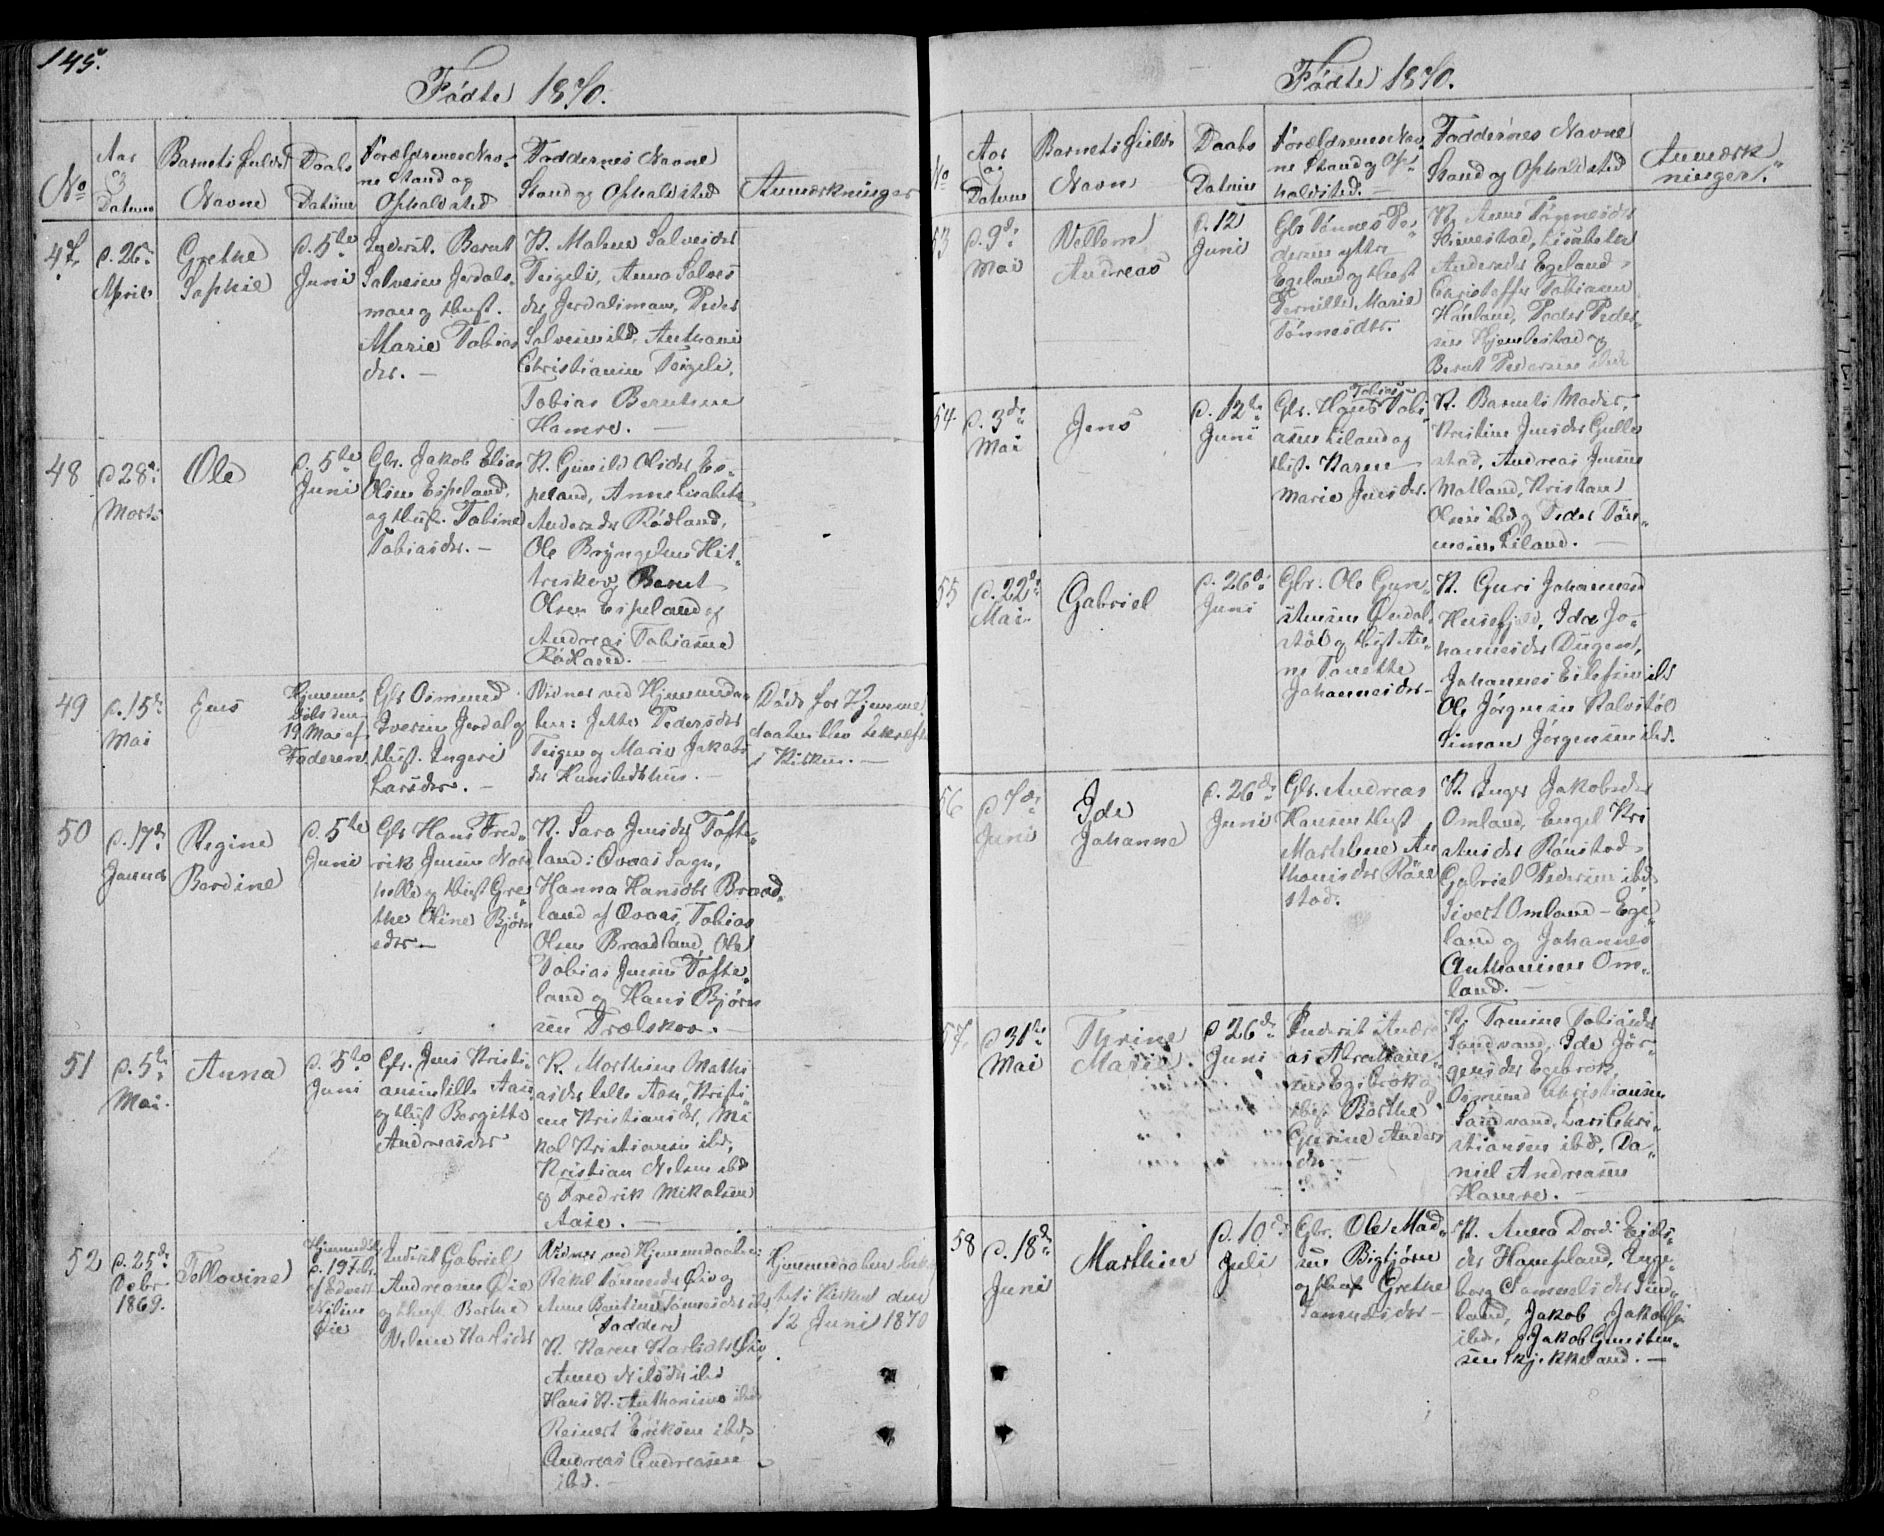 145.
Fødte 1870.
No
Aar og Datum
Barnets fulde Navne
Daabs Datum
Forældrenes Navne Stand og Opholdsted
Faddernes Navne Stand og Opholdsted
Anmærkninger
47.
d. 26de April
Grethe
Sophie
d. 5te
Juni
Inderst. Bernt
Salvesen Jerdals-
man og Hust.
Marie Tobias
dtr. —
K. Malene Salvesdtr
Teigeli, Anna Salves
dtr Jerdalsman, Peder
Salvesen ibd, Anthoni
Christiansen Teigeli,
Tobias Berntsen
Hamre. —
48
d 28de
Marts
Ole
d. 5te
Juni
Gbr. Jakob Elias
Olsen Espeland,
og Hust. Tobine
Tobiasdtr. —
K. Gunild Olsdtr Es-
peland, Anne Lisabeth
Andersdtr Rødland,
Ole Bryngelsen Hit-
treskov, Bernt
Olsen Espeland og
Andreas Tobiasen
Rødland. —
49
d. 15de
Mai
Jens
Hjemme-
døbt den
19 Mai af
Faderen
Gbr Osmund
Iversen Jerdal og
Hust. Ingeri
Larsdtr. —
Vidner ved Hjemmedaa-
ben: Jette Pedersdtr
Teigen og Marie Jakobs
dtr Hunstedthun. —
Døde før Hjemme
daaben blev bekræftet
i Kirken. —
50
d. 17de
Januar
Regine
Berdine
d. 5te
Juni
Gbr Hans Fred-
rik Jensen Nord
helle og Hust Gre
the Oline Bjørn
sdtr —
K. Sara Jensdtr Tofte-
land i Qvaas Sogn,
Hanna Hansdtr Braad-
land af Qvaas, Tobias
Olsen Braadland, Ole
Tobias Jensen Tofte-
land og Hans Bjørn
sen Trælskov. —
51
d. 5te
Mai.
Anna
d. 5te
Juni
Gbr. Jens Kristi-
ansen lille Aase
og Hust Bergitte
Andreasdtr
K. Marthine Mathi
asdtr lille Aase, Kristi-
ne Kristiansdtr, Mi
kal Kristiansen ibd,
Kristian Nilsen ibd
og Fredrik Mikalsen
Aase. —
52
d. 25de
Decbr
1869.
Tellovine
Hjemmedøbt
d. 19 Febr.
af Edvert
Øie
Inderst Gabriel
Andreasen Øie
og Hust Berthe
Helene Karlsdtr
Vidner ved Hjemmedaaben:
Rakel Tønnesdtr Øie og
Anne Bentine Tønnesdtr ibd.
Faddere
K. Karen Karlsdtr Øie,
Anne Nilsdtr ibd
Hans K. Anthonisen ibd
Reinert Eriksen ibd,
Andreas Andreasen
ibd. —
Hjemmedaaben bekræf
tet i Kirken den
12 Juni 1870
Fødte 1870.
No
Aar og Datum
Barnets fulde Navn
Daabs Datum
Forældrenes Navne Stand og Opholdsted. —
Faddernes Navne Stand og Opholdsted
Anmærkninger.
53
d. 9de
Mai
Vellem
Andreas
d. 12
Juni
Gbr Tønnes Pe-
dersen ytre
Egeland og Hust
Pernille Marie
Tønnesdtr.
K. Anne Tønnesdtr
Birkestad, Lisabeth
Andersdtr Egeland,
Christoffer Tobiasen
Haaland, Peder Peder-
sen Hjemlestad og
Bernt Pedersen ibd
54.
d. 3de
Mai
Jens
d. 12te
Juni
Gbr. Hans Tobi-
asen Eiland og
Hust. Karen
Marie Jensdtr.
K. Barnets Moder,
Kristine Jensdtr Gulle
stad, Andreas Jensen
Motland, Kristian
Olsen ibd og Peder Tøn-
nesen Eiland. —
55
d. 22de
Mai
Gabriel
d. 26de
Juni
Gbr. Ole Gun-
stensen Qvedal-
støl og Hust An-
ne Tonette
Johannesdtr —
K. Guri Johannesd
Husefjeld, Ida Jo-
hannesdtr Dugen,
Johannes Eilefsen ibd
Ole Jørgensen Kalvstøl
Simon Jørgensen ibd.
56
d 7de
Juni
Ide
Johanna
d. 26de
Juni
Gbr. Andreas
Hansen Hust
Marthine An
thonisdtr Røise
stad.
K. Inger Jakobsdtr
Omland, Engel Kri
stensdtr Rønstad,
Gabriel Pedersen ibd.
Sivert Omland - Ege-
land og Johannes
Anthonisen Om-
land. —
57.
d 31te
Mai
Thrine
Marie
d. 26de
Juni
Inderst Andre
as Abrahams-
sen Egebrok og
Hust Børthe
Gurine Anders
dtr. —
K. Tomine Tobiasdtr
Sandvand, Ide Jør-
gensdtr Egebrok,
Osmund Christiansen
Sandvand, Lars Chri-
stiansen ibd, Da-
niel Andreasen
Hamre. —
58
d. 18de
Juni
Marthine
d. 10de
Juli
Gbr. Ole Mad-
sen Bigtjørn
og Hust Grethe
Samuelsdtr —
K. Anna Dordi Eilts
dtr Hampland, Inge-
borg Samuelsdtr Sind-
land, Jakob Jakobsen
ibd, Jakob Gunsten-
sen Skjekkeland. —